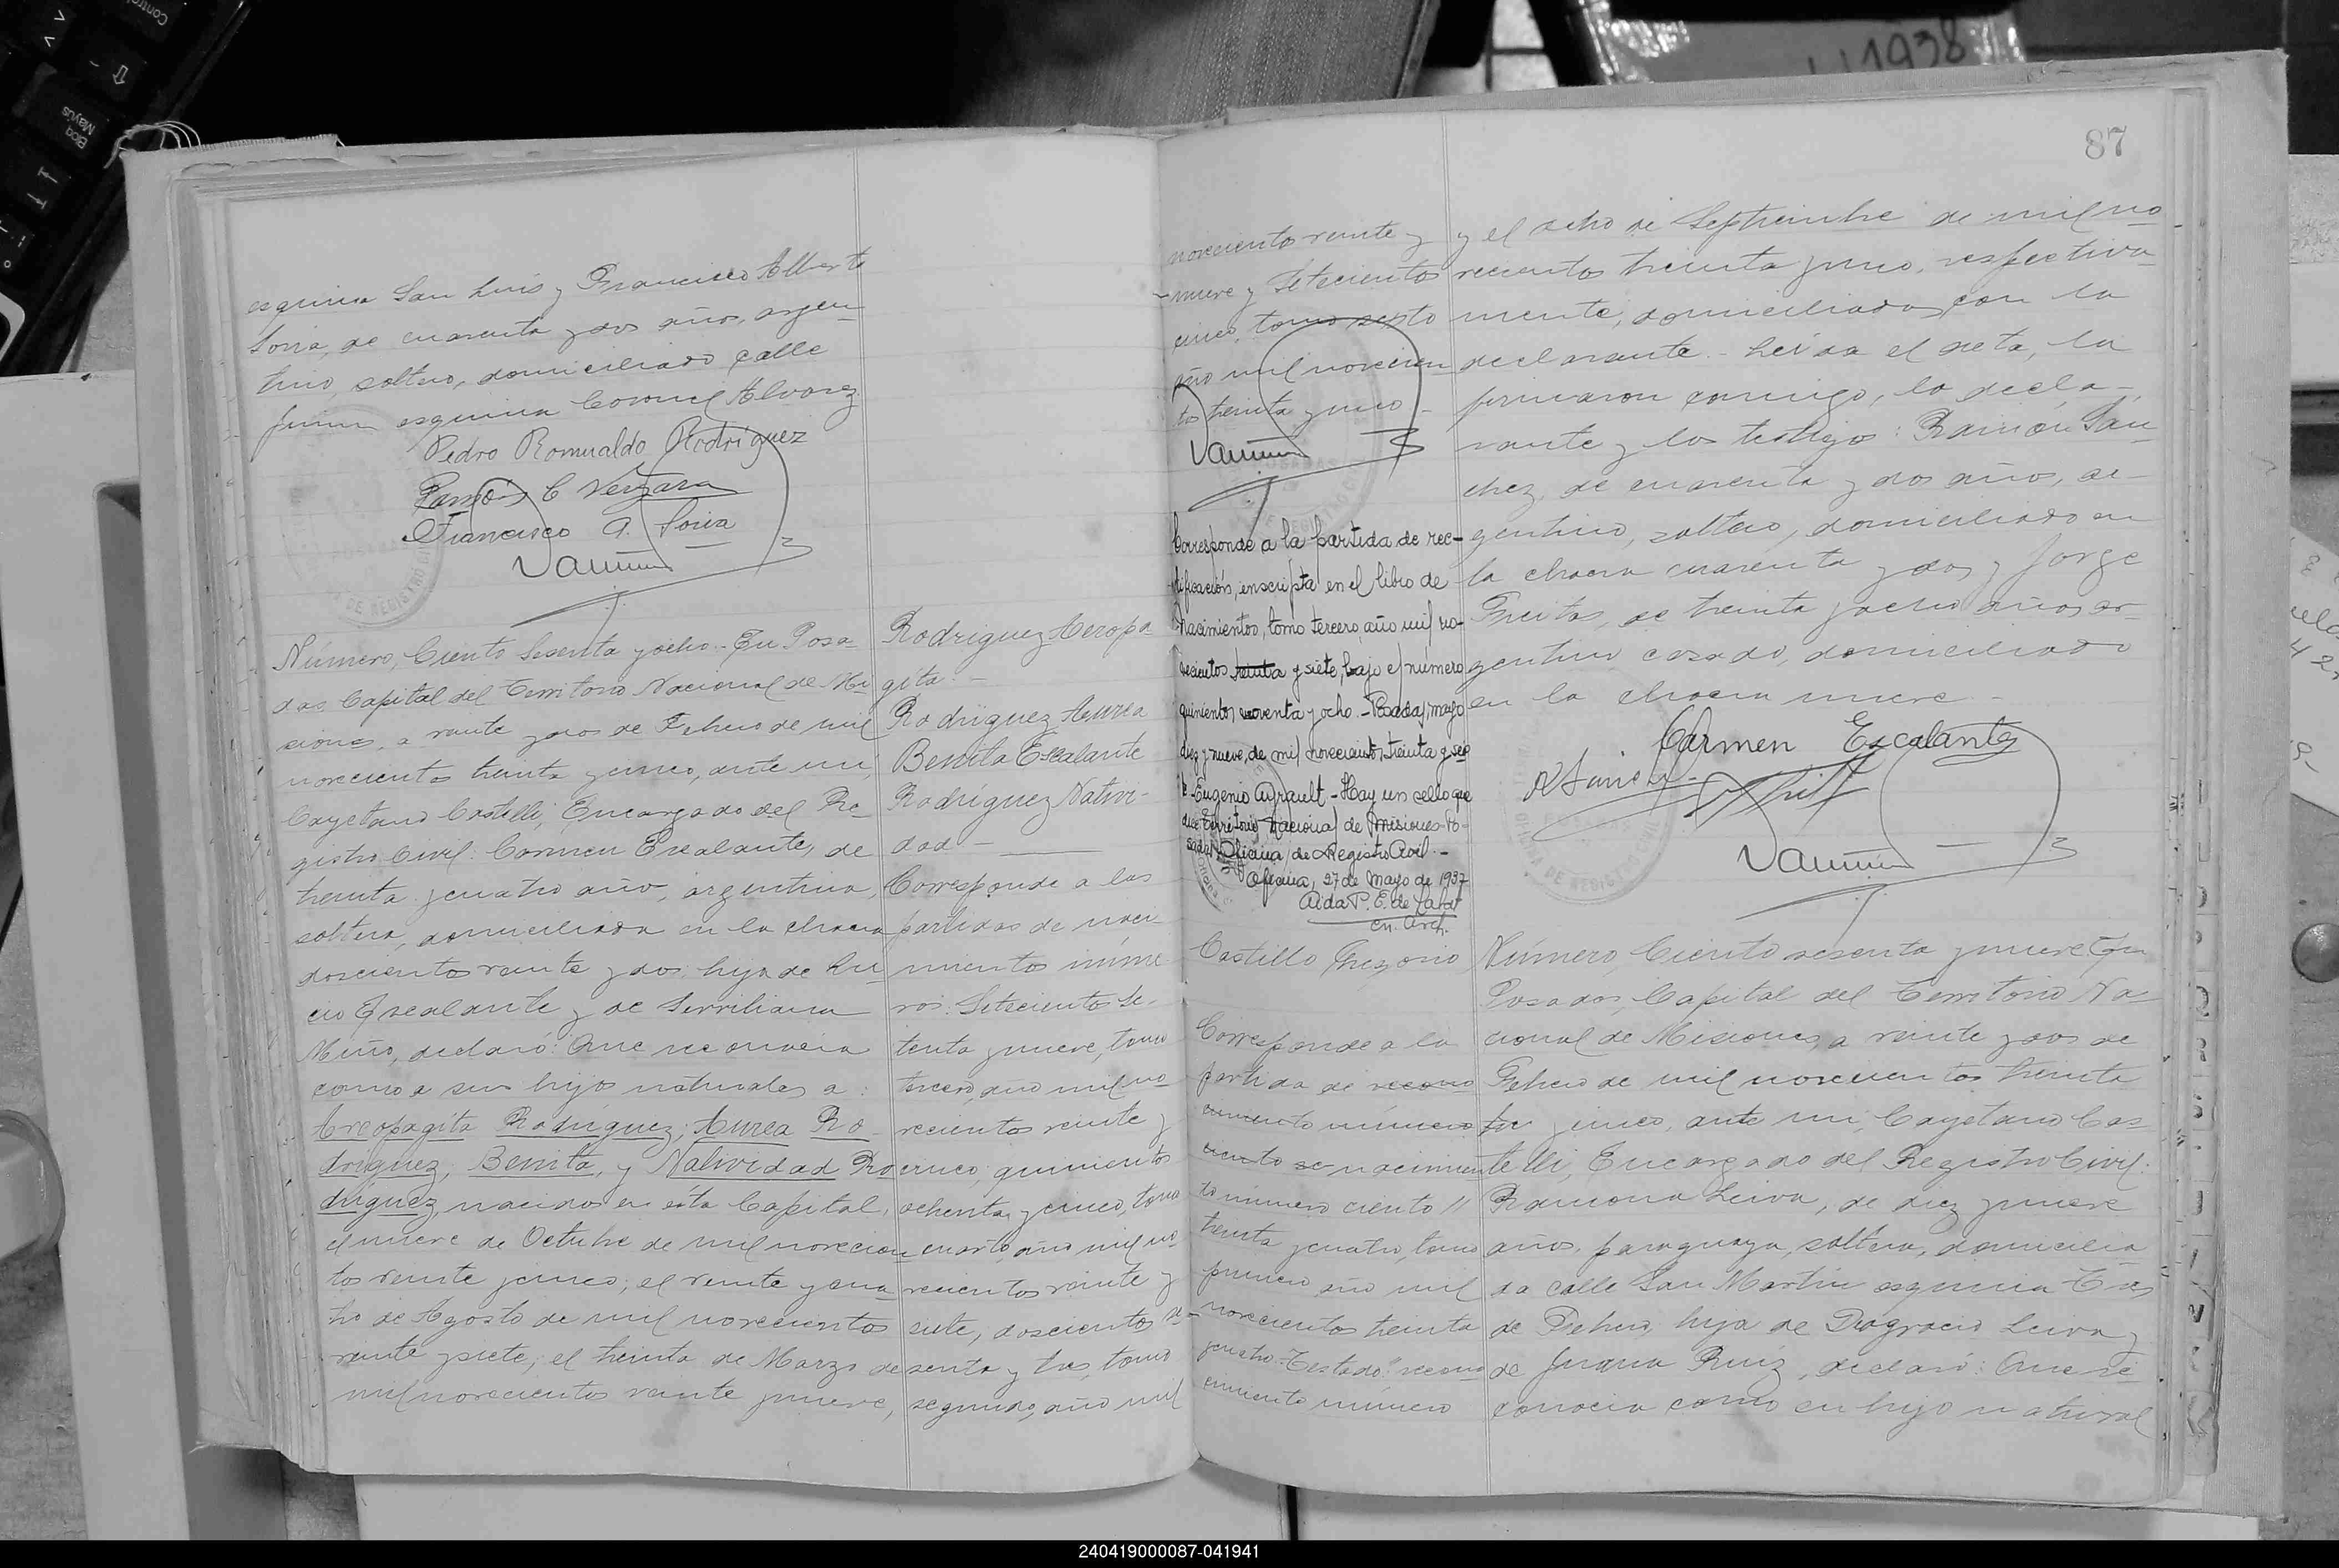 esquina San Luis y Francisco Alberto
Soria, de cuarenta y dos años, argen-
tino, soltero, domiciliado calle
Junin esquina Coronel Alvarez
Pedro Romualdo Rodriguez
Ramón C Vergara
Francisco A. Soria
Número, Ciento Sesenta y ocho.- En Posa-
das Capital del Territorio Nacional de Mi
siones, a veinte y dos de Febrero de mil
novecientos treinta y cinco, ante mi,
Cayetano Castelli, Encargado del Re-
gistro Civil: Carmen Escalante, de
treinta y cuatro años, argentina,
soltera, domiciliada en la chacra
doscientos veinte y dos, hija de Lu
cio Escalante y de
Miño, declaró: Que reconocia
como a sus hijos naturales a:
Areopagita Rodriguez; Aurea Ro-
driguez; Benita, y Natividad Ro
driguez, nacidos en ésta Capital,
el nueve de Octubre de mil novecien
tos veinte y cinco; el veinte y cua
tro de Agosto de mil novecientos
veinte y siete; el treinta de Marzo de
mil novecientos veinte y nueve,
Rodriguez Aeropa
gita.-
Rodriguez Aurea
Benita Escalante
Rodriguez Nativi-
dad -
Corresponde a las
partidas de naci
mientos núme
ros: Setecientos se-
tenta y nueve, tomo
tercero, año mil no
vecientos veinte y
cinco; quinientos
ochenta y cinco, tomo
cuarto, año mil no
vecientos veinte y
siete, doscientos se-
senta y tres, tomo
segundo, año mil
87
novecientos veinte y
nueve y setecientos
cinco, tomo sexto
año mil novecien
tos treinta y uno -
Corresponde a la partida de rec-
tificación, inscripta en el libro de
Nacimientos, tomo tercero, año mil no-
vecientos treinta y siete, bajo el número
quinientos noventa y ocho.- Posadas, mayo
diez y nueve, de mil novecientos treinta y sie
te - Eugenio Ayrault - Hay un sello que
dice Territorio Nacional de Misiones - Po-
sadas, Oficina de Registro Civil. -
Oficina, 27 de Mayo de 1937
Aida P. E. de
En. Arch.
Castillo Gregorio
Corresponde a la
partida de recono
cimiento número
ciento se nacimien
to número ciento //
treinta y cuatro, tomo
primero año mil
novecientos treinta
y cuatro. Testado: "recono
cimiento número
y el ocho de Septiembre de mil no
vecientos treinta y uno, respectiva-
mente, domiciliados con la
declarante.- Leida el acta, la
firmaron conmigo, la decla-
rante y los testigos: Ramón San-
chez, de cuarenta y dos años, ar-
gentino, soltero, domiciliado en
la chacra cuarenta y dos y Jorge
de treinta y ocho años, ar-
gentino casado, domiciliado
en la chacra nueve -
Carmen Escalante
Número, Ciento sesenta y nueve En
Posadas, Capital del Territorio Na
cional de Misiones, a veinte y dos de
Febrero de mil novecientos treinta
y cinco, ante mi, Cayetano Cas
telli, Encargado del Registro Civil:
Ramona Leiva, de diez y nueve
años, paraguaya, soltera, domicilia
da calle San Martin esquina Tres
de Febrero, hija de Deogracio Leiva y
de Juana Ruiz, declaró: Que re
conocia como su hijo natural
240419000087-041941